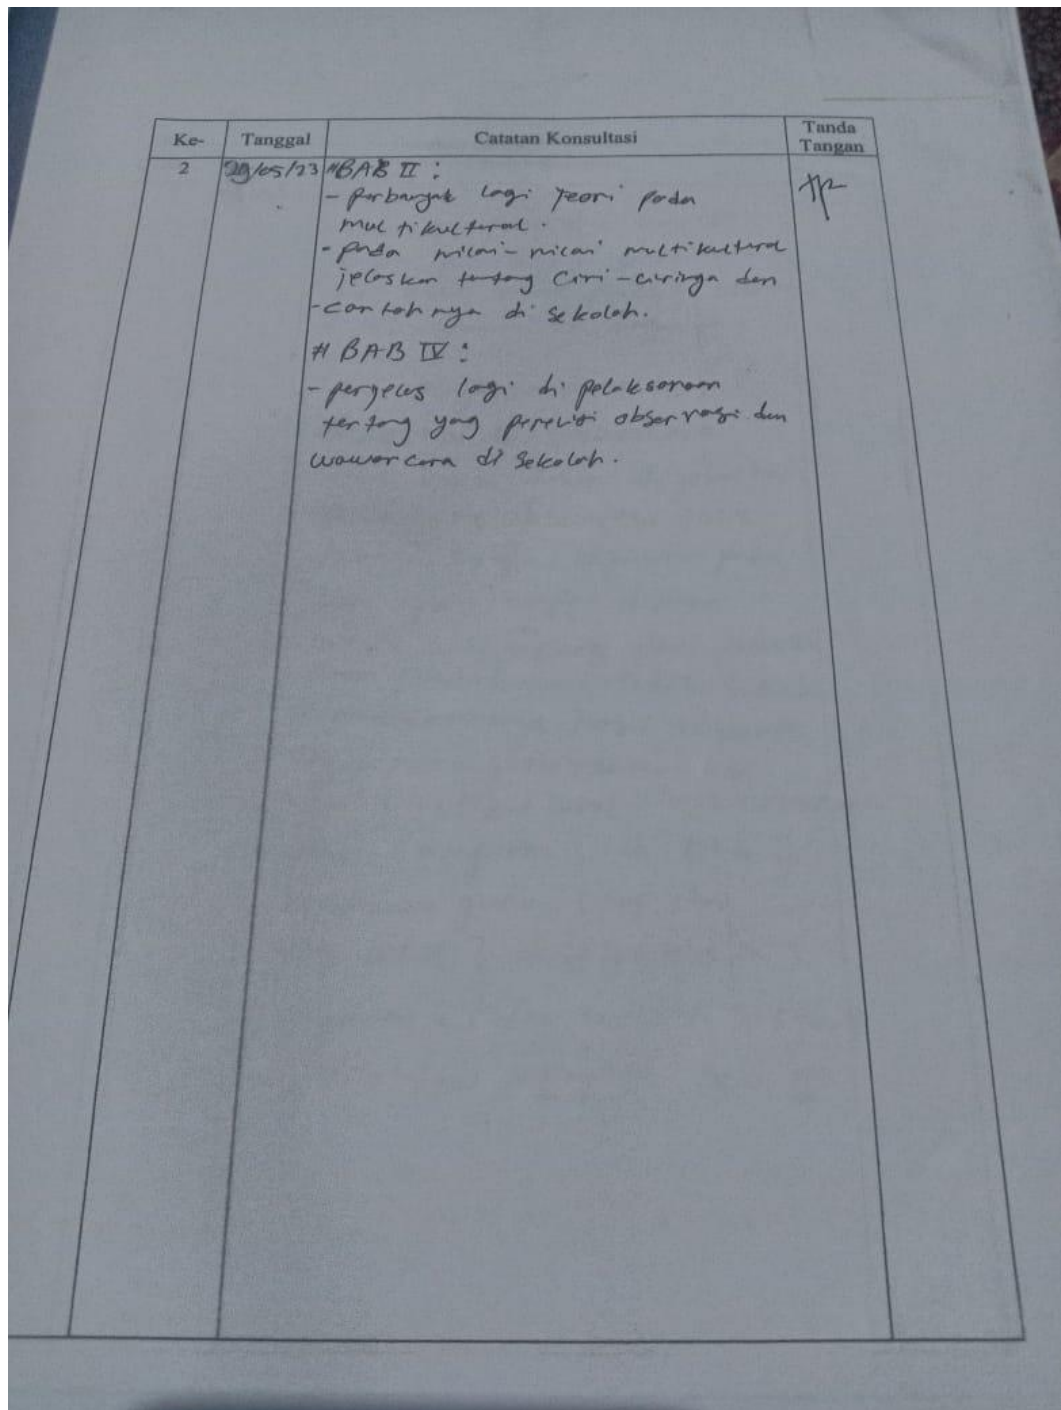 Ke- Tanggal Catatan Konsultasi Tanda Tangan
2 29/05/23 #BAB II :
- Perbanyak lagi Teori pada
multikultural.
- pada nilai-nilai multikultural
jelaskan tentang Ciri-cirinya dan
- contohnya di sekolah.
# BAB IV :
- perjelas lagi di pelaksanaan
tentang yang peneliti observasi dan
wawancara di sekolah.